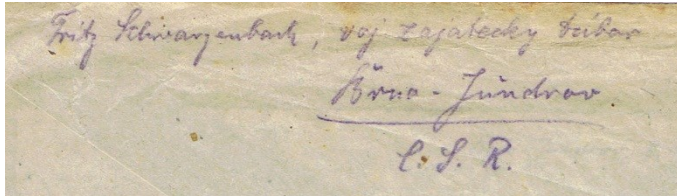 Fritz Schwarzenbach, voj zajatecky tábor
Brno - Jundrov
C. S. R.